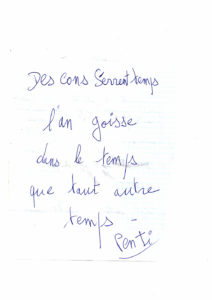 Des cons Serrent temps
l'an goisse
dans le temps
que tout autre
temps -
Penti